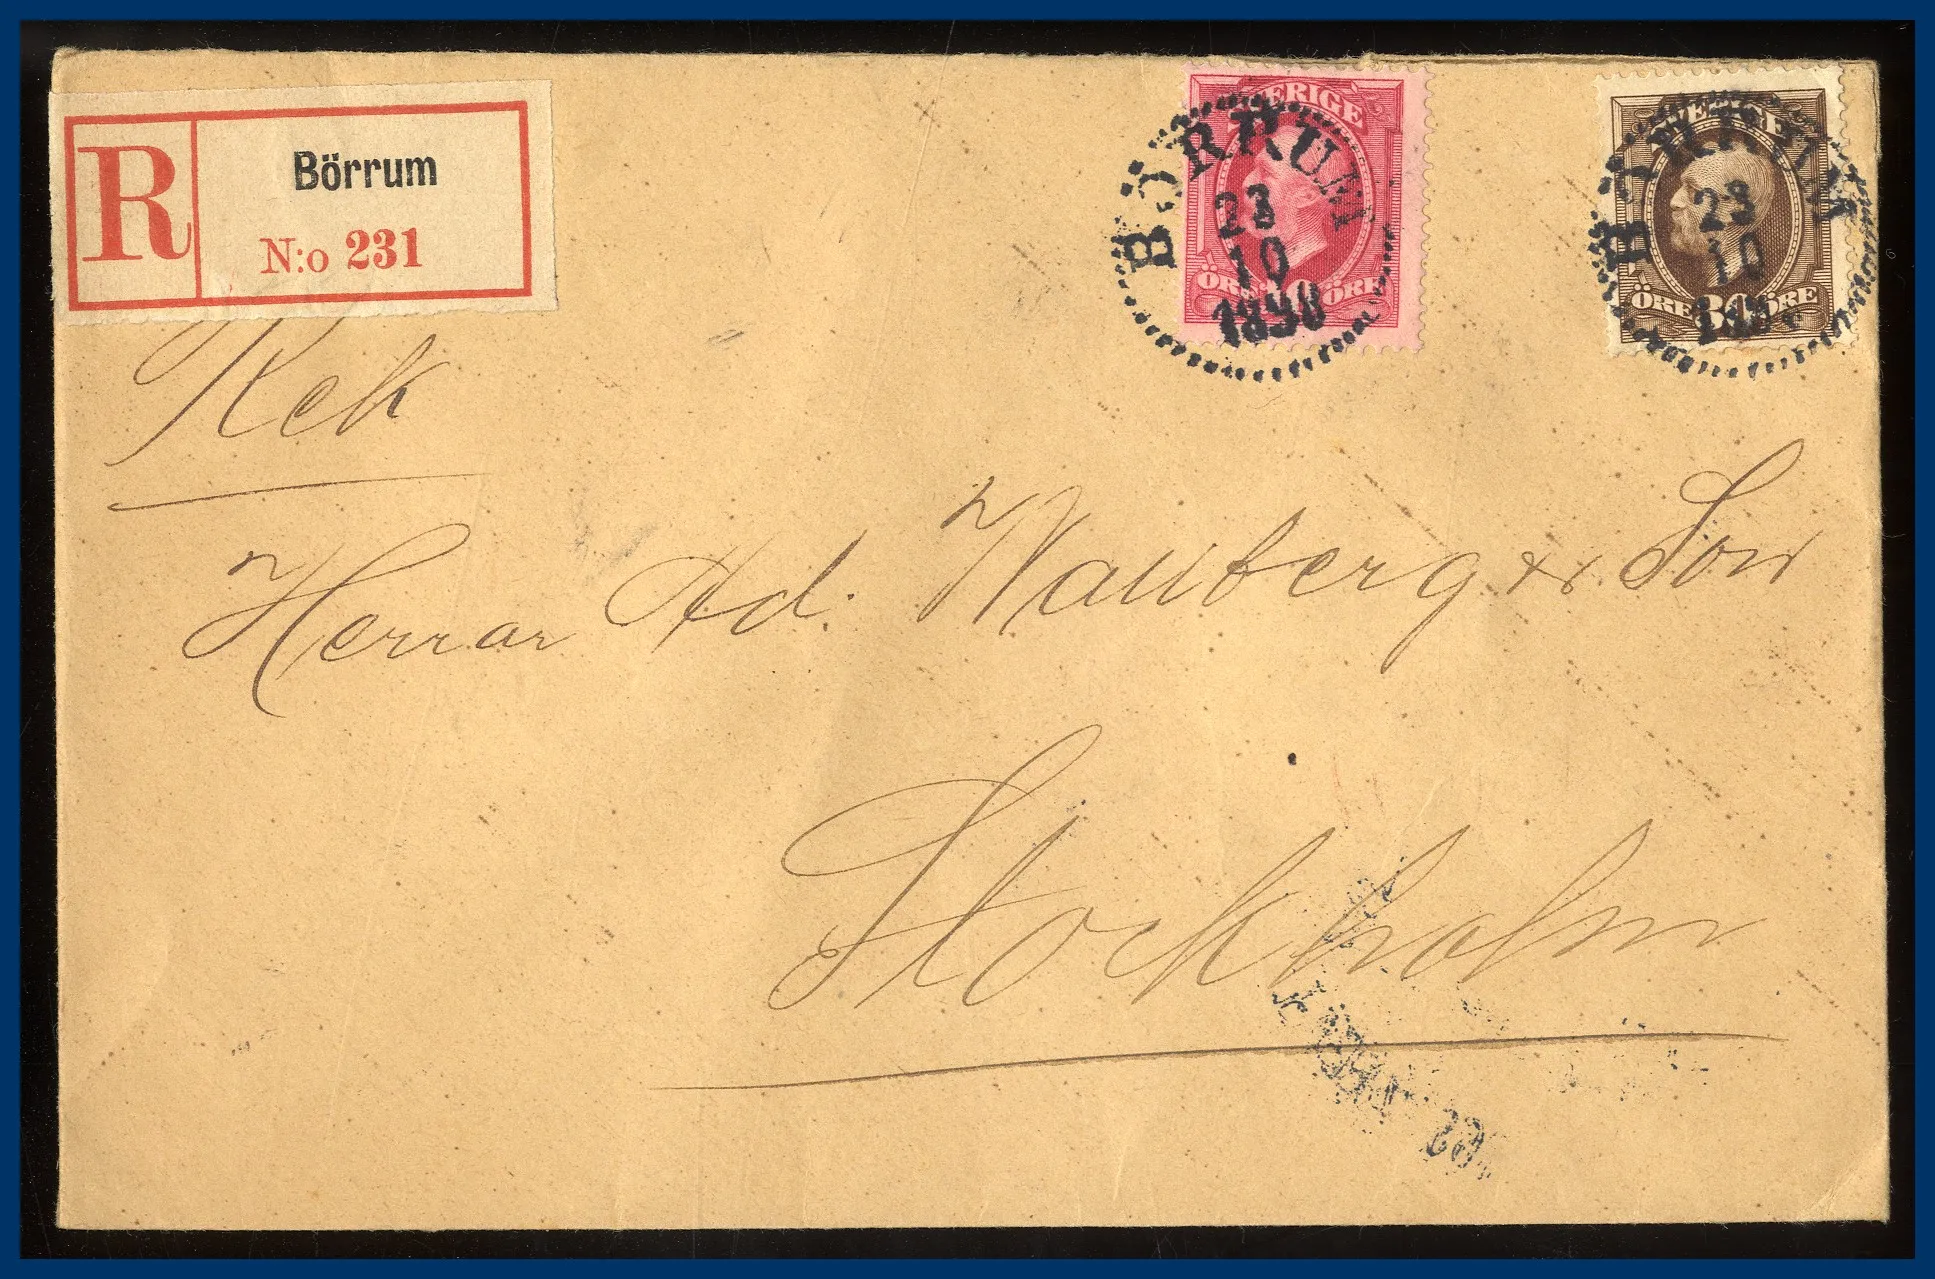 R
Börrum
N:o 231
SVERIGE
ÖRE 10 ÖRE
BÖRRUM
23
10
1898
SVERIGE
ÖRE 30 ÖRE
BÖRRUM
23
10
Rek
Herrar Ad.
& Son
Stockholm